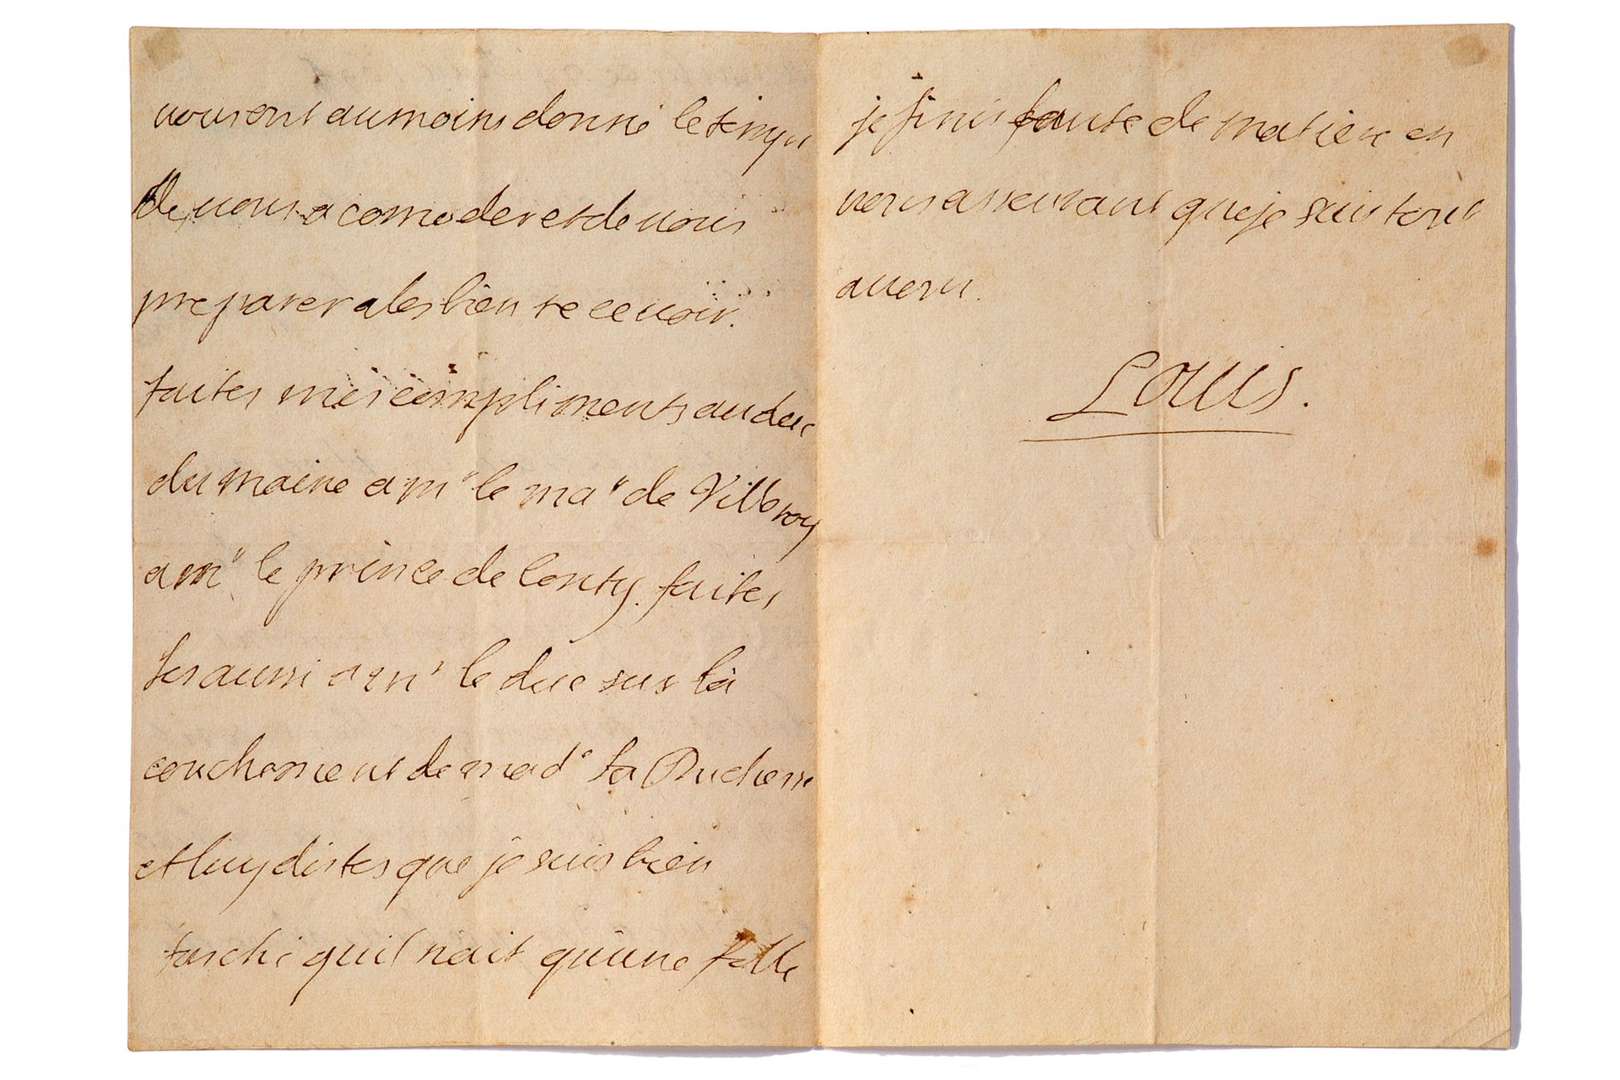 nous ont au moins donné le temps
de nous acomoder et de nous
preparer a les bien recevoir.
faites mes compliments au duc
du maine a mr le mal de Villeroy
a mr le prince de Conty. faites
les aussi a mr le duc sur la
couchement de made la Duchesse
et luy dites que je suis bien
faschè quil nait qu'une fille
je finis faute de matiere en
vous asseurant que je suis tout
a vous.
Louis.